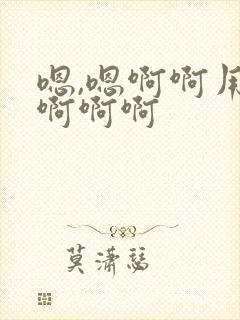 嗯,嗯啊啊
啊啊啊
莫潇